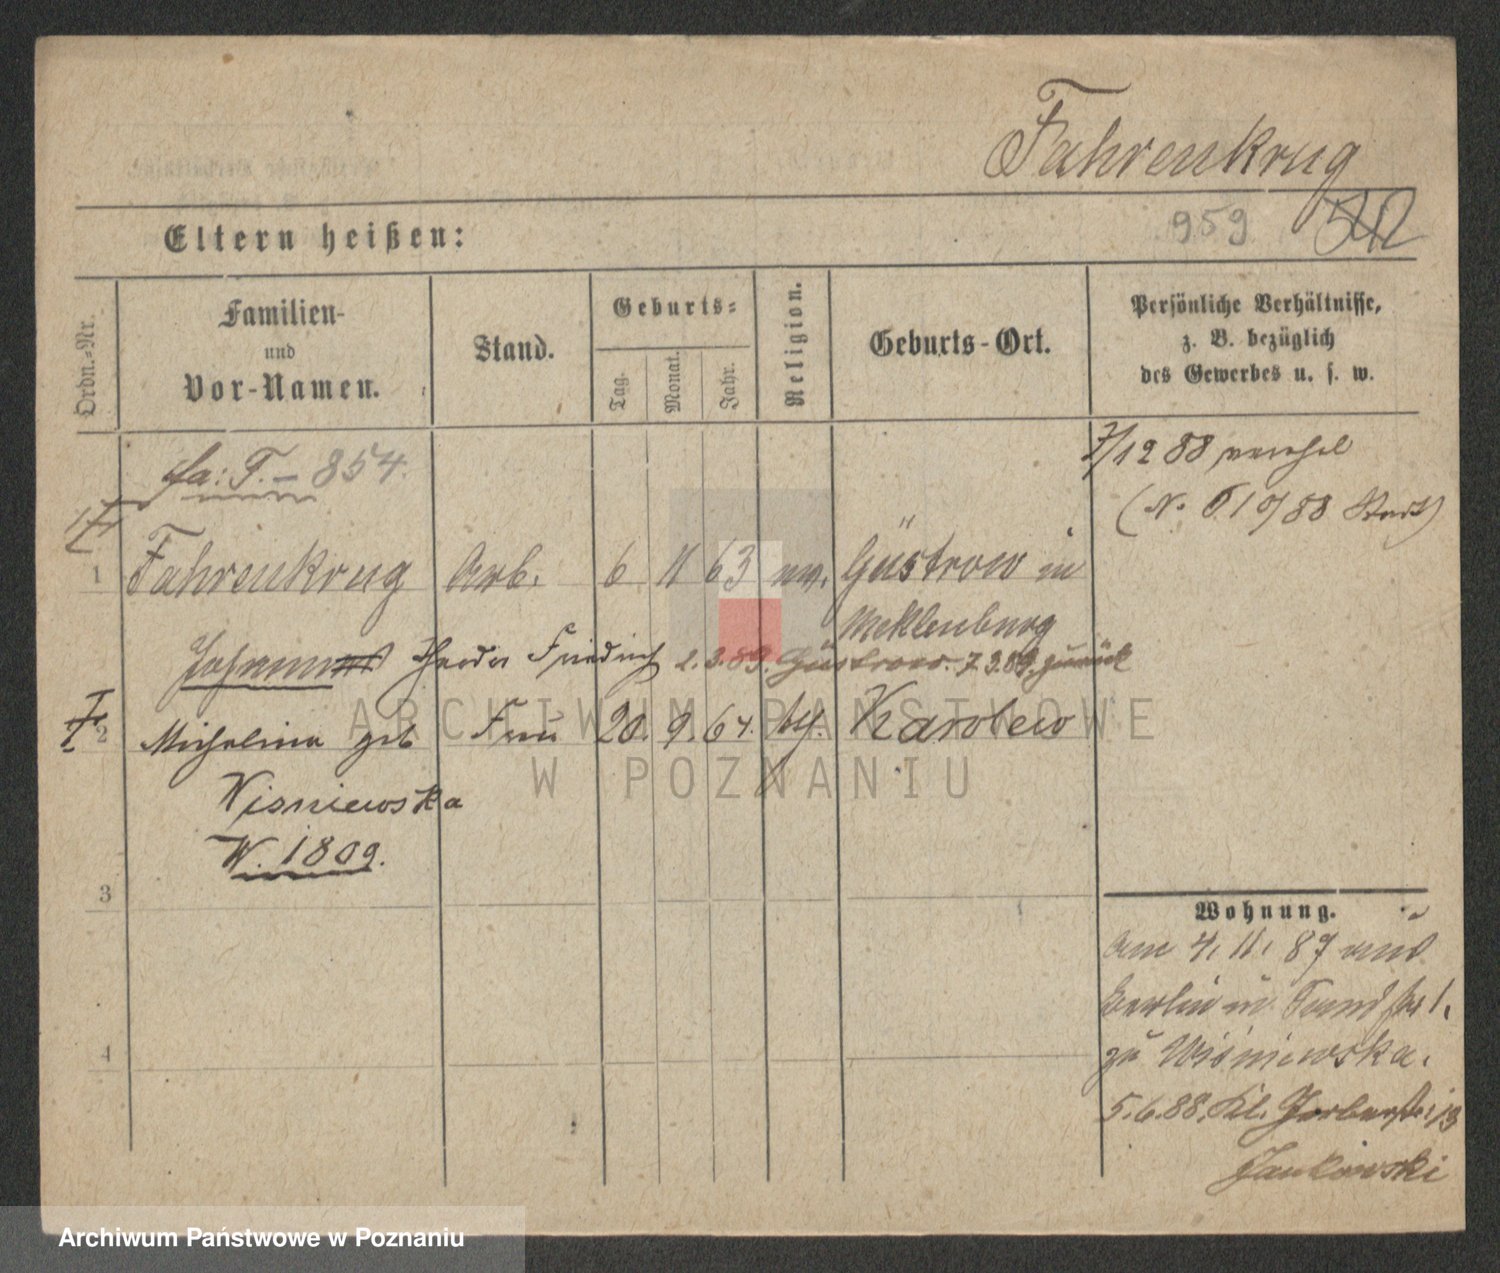 Fahrenkrug
Eltern heißen:
959 542
Ordn.-Nr.
Familien-
und
Vor-Namen.
Stand.
Geburts-
Tag.
Monat.
Jahr.
Religion.
Geburts-Ort.
Persönliche Verhältnisse,
z. B. bezüglich
des Gewerbes u. s. w.
fa: F. - 854.
7/12 88
(N. 610/88 )
1 Fahrenkrug Arb. 6 11 63 ev. Güstrow in
Mecklenburg
Johann Theodor Friedrich 2.3.89. Güstrow. 7.3.89 zurück
2 Michalina geb Frau 20. 9. 64. kth. Karolew
Wisniewska
W. 1809.
3
Wohnung.
am 4. 11. 87 aus
Berlin in
zu Wisniewska.
4
5.6.88. Kl. Gerberstr. 13
Jankowski
ARCHIWUM PAŃSTWOWE
W POZNANIU
Archiwum Państwowe w Poznaniu